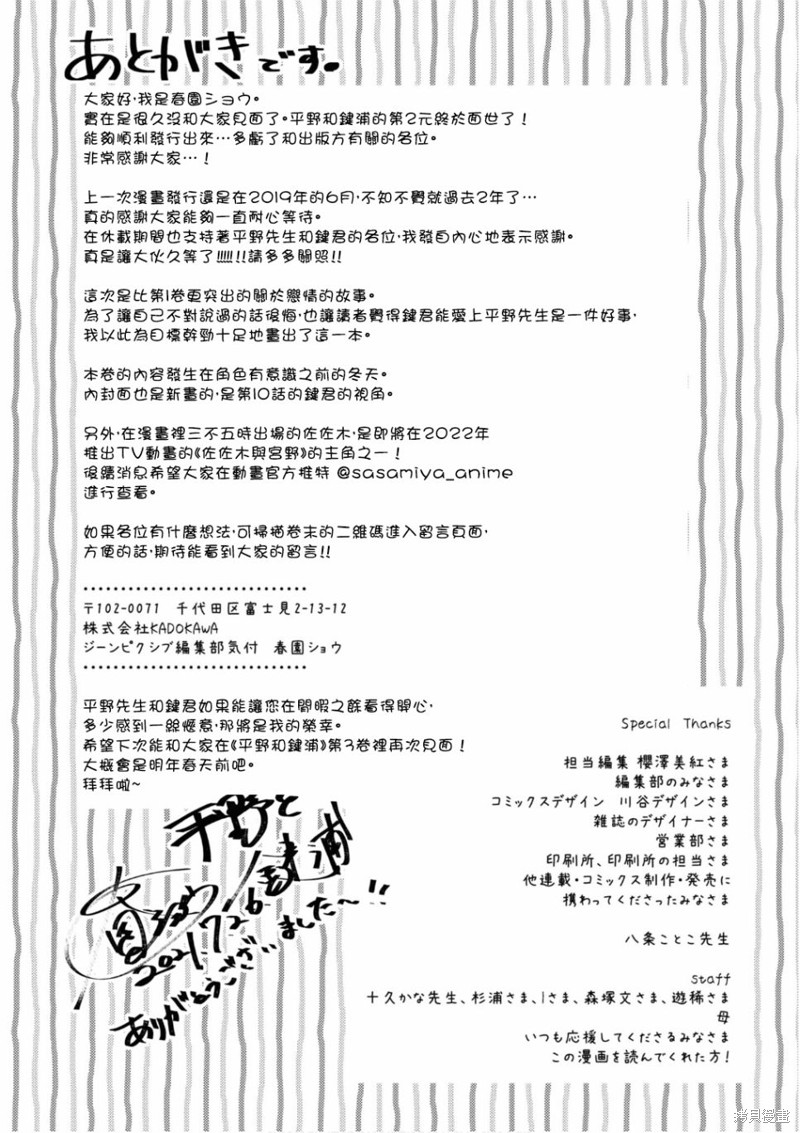 あとがきです。
大家好，我是春園ショウ。
實在是很久沒和大家見面了。平野和鍵浦的第2元終於面世了！
能夠順利發行出來…多虧了和出版方有關的各位。
非常感謝大家…！
上一次漫畫發行還是在2019年的6月，不知不覺就過去2年了…
真的感謝大家能夠一直耐心等待。
在休載期間也支持著平野先生和鍵君的各位，我發自內心地表示感謝。
真是讓大伙久等了!!!!!!請多多關照!!
這次是比第1卷更突出的關於戀情的故事。
為了讓自己不對說過的話後悔，也讓讀者覺得鍵君能愛上平野先生是一件好事，
我以此為目標幹勁十足地畫出了這一本。
本卷的內容發生在角色有意識之前的冬天。
內封面也是新畫的，是第10話的鍵君的視角。
另外，在漫畫裡三不五時出場的佐佐木，是即將在2022年
推出TV動畫的《佐佐木與宮野》的主角之一！
後續消息希望大家在動畫官方推特 @sasamiya_anime
進行查看。
如果各位有什麼想法，可掃描卷末的二維碼進入留言頁面，
方便的話，期待能看到大家的留言!!
〒102-0071 千代田区富士見2-13-12
株式会社KADOKAWA
ジーンピクシブ編集部気付 春園ショウ
平野先生和鍵君如果能讓您在閒暇之餘看得開心，
多少感到一絲愜意，那將是我的榮幸。
希望下次能和大家在《平野和鍵浦》第3卷裡再次見面！
大概會是明年春天前吧。
拜拜啦~
平野と
鍵浦
2021.7.26
ありがとうございました〜!!
Special Thanks
担当編集 櫻澤美紅さま
編集部のみなさま
コミックスデザイン 川谷デザインさま
雑誌のデザイナーさま
営業部さま
印刷所、印刷所の担当さま
他連載・コミックス制作・発売に
携わってくださったみなさま
八条ことこ先生
staff
十久かな先生、杉浦さま、Iさま、森塚文さま、遊稀さま
母
いつも応援してくださるみなさま
この漫画を読んでくれた方！
拷貝漫畫